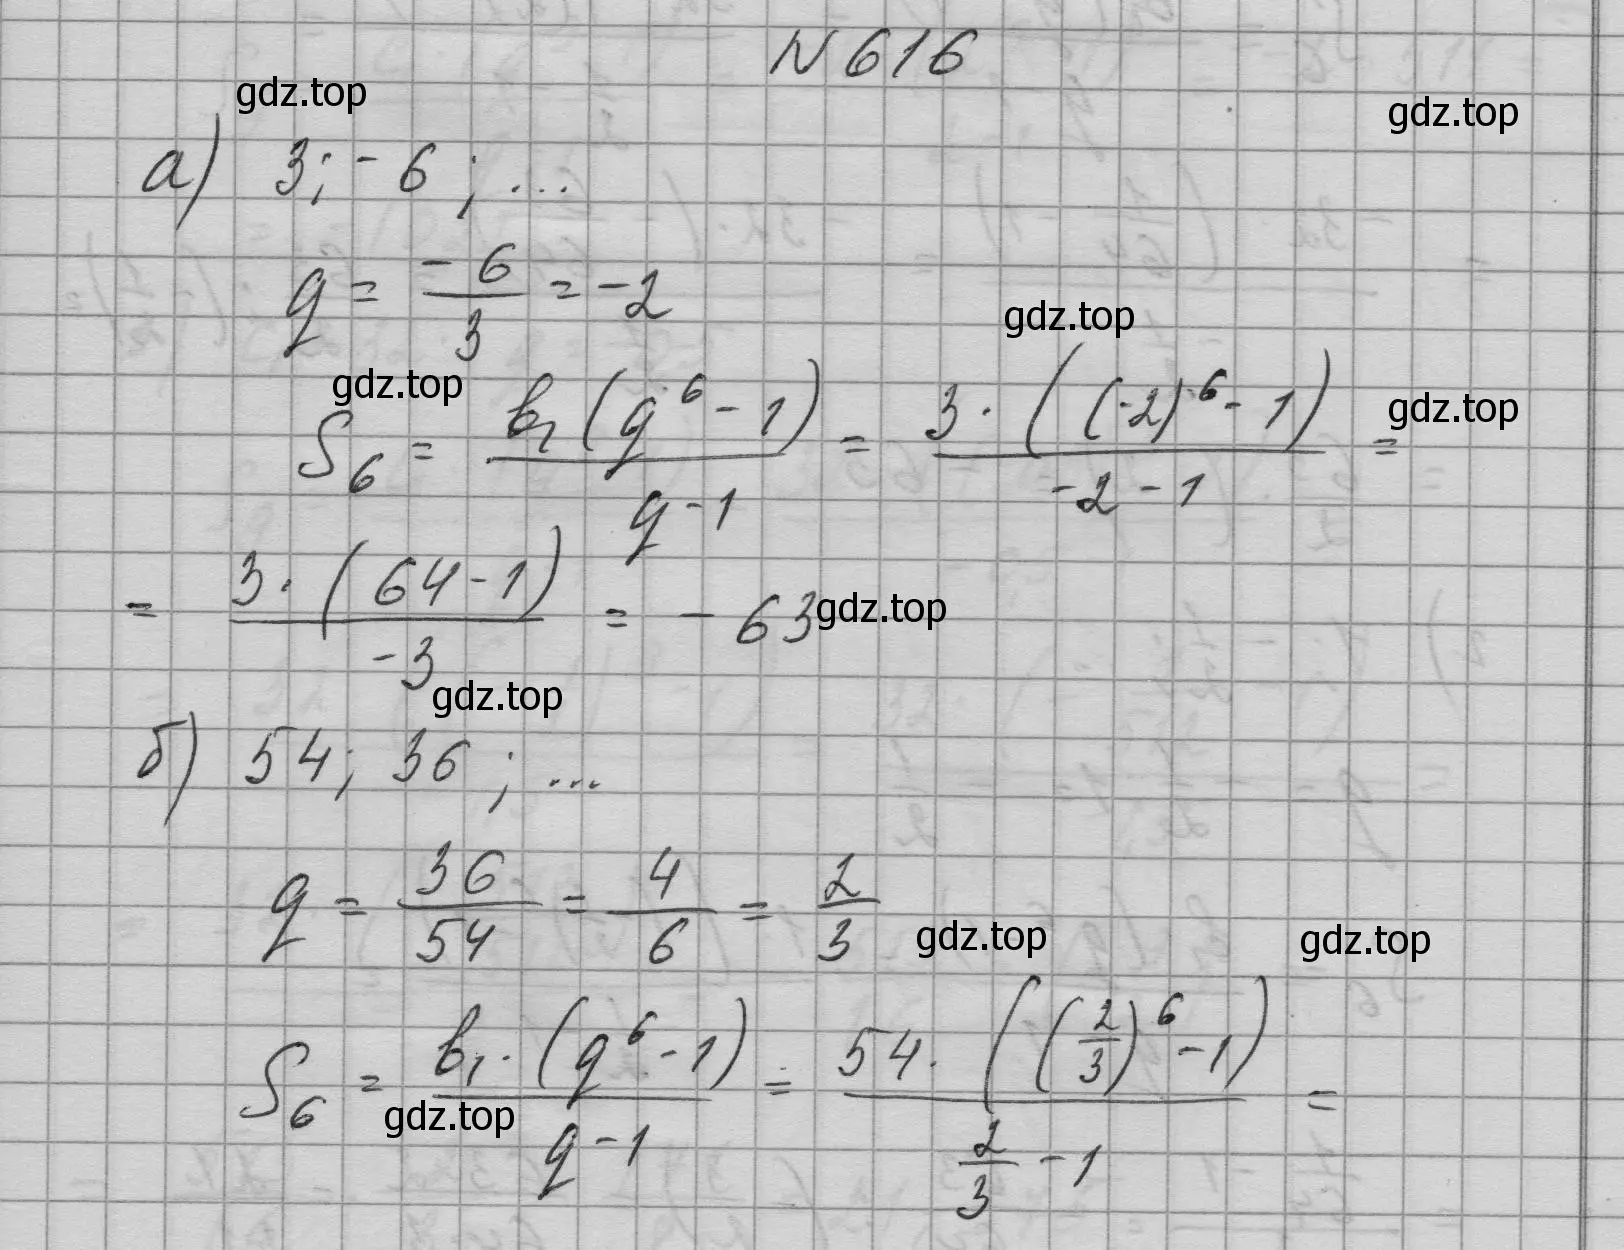 N 616
gdz.top
gdz.top
а) 3; -6; ...
q = -6/3 = -2
gdz.top
gdz.top
gdz.top
S₆ = b₁(q⁶ - 1)/(q - 1) = 3·((-2)⁶ - 1)/(-2 - 1) =
= 3·(64 - 1)/(-3) = -63
gdz.top
gdz.top
б) 54; 36; ...
q = 36/54 = 4/6 = 2/3
gdz.top
gdz.top
S₆ = b₁·(q⁶ - 1)/(q - 1) = 54·((2/3)⁶ - 1)/(2/3 - 1) =
gdz.top